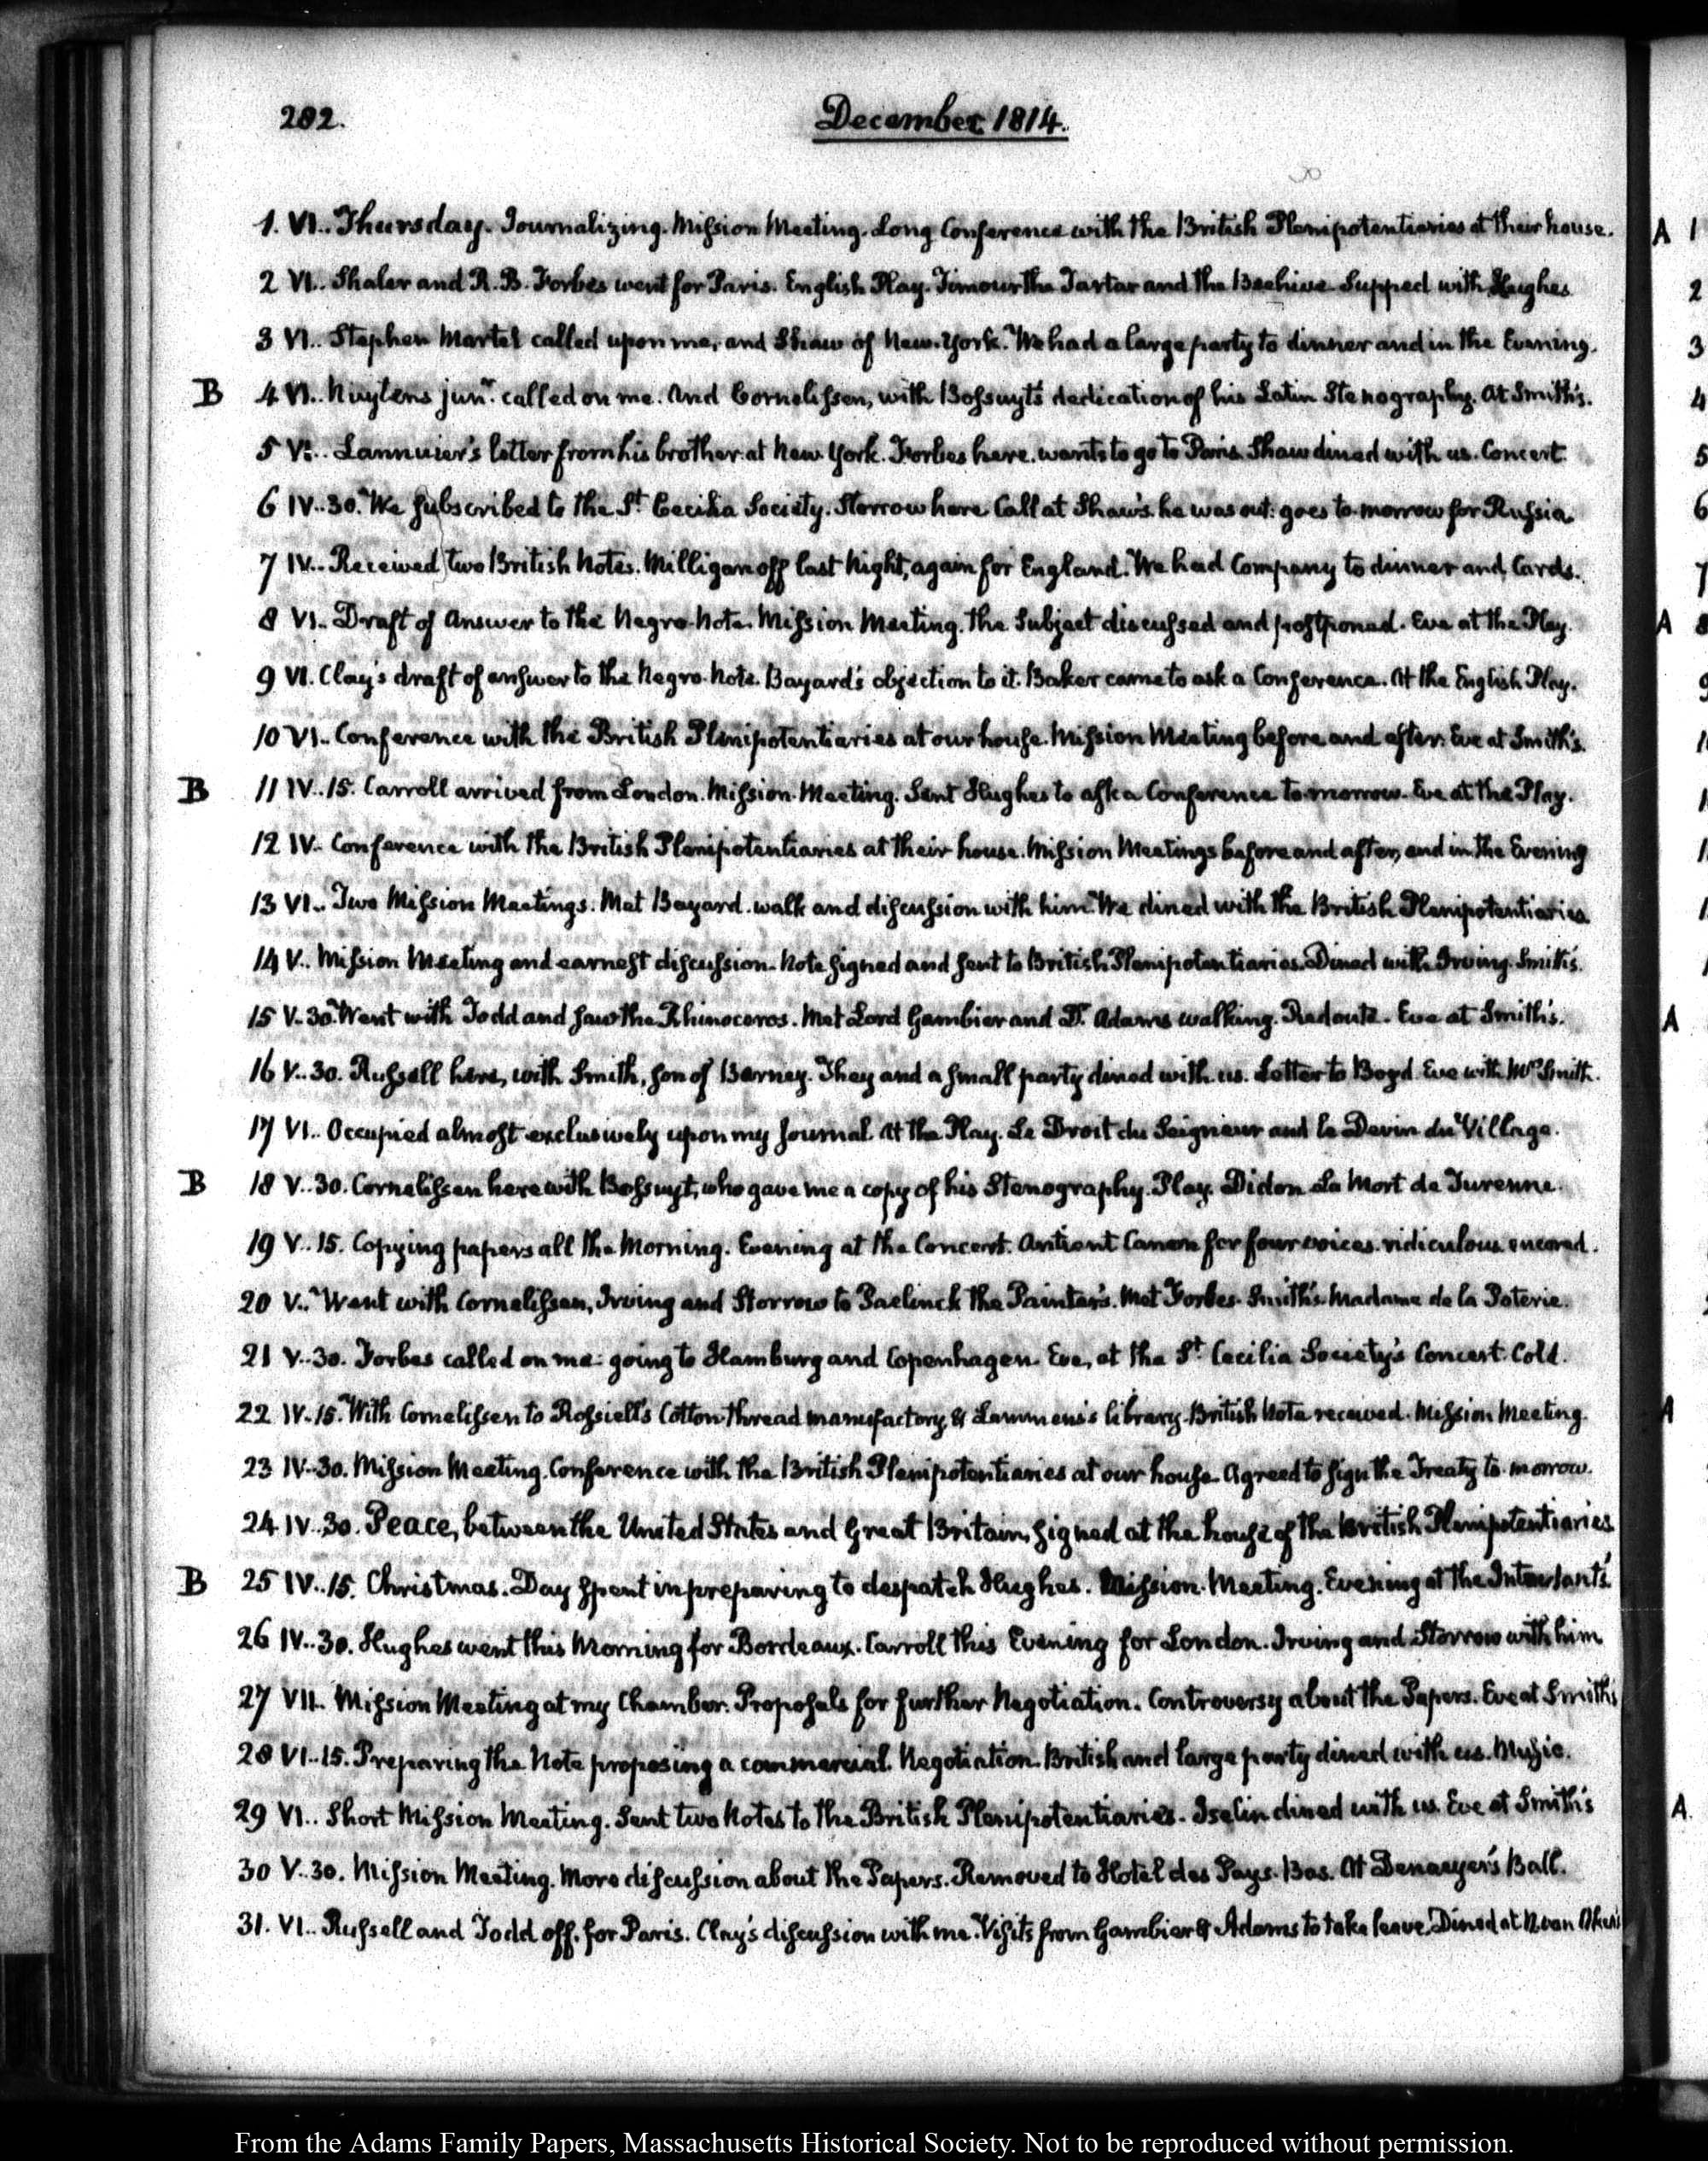 282.
December 1814.
1. VI.. Thursday. Journalizing. Mission Meeting. Long Conference with the British Plenipotentiaries at their house.
2 VI.. Shaler and R. B. Forbes went for Paris. English Play. Timour the Tartar and the Beehive. Supped with Hughes
3 VI.. Stephen Martel called upon me, and Shaw of New-York. We had a large party to dinner and in the Evening.
B 4 VI.. Nuytens junr. called on me. And Cornelissen, with Bossuyt's dedication of his Latin Stenography. At Smith's.
5 V.. Lannuier's letter from his brother at New York. Forbes here. wants to go to Paris. Shaw dined with us. Concert.
6 IV..30. We subscribed to the St. Cecilia Society. Storrow here. Call at Shaw's. he was out: goes to-morrow for Russia.
7 IV.. Received two British Notes. Milligan off last Night, again for England. We had Company to dinner and Cards.
8 VI.. Draft of Answer to the Negro-Note. Mission Meeting. The Subject discussed and postponed. Eve at the Play.
9 VI. Clay's draft of answer to the Negro-Note. Bayard's objection to it. Baker came to ask a Conference. At the English Play.
10 VI.. Conference with the British Plenipotentiaries at our house. Mission Meeting before and after. Eve at Smith's.
B 11 IV..15. Carroll arrived from London. Mission-Meeting. Sent Hughes to ask a Conference to-morrow. Eve at the Play.
12 IV.. Conference with the British Plenipotentiaries at their house. Mission Meetings before and after, and in the Evening
13 VI.. Two Mission Meetings. Met Bayard. walk and discussion with him. We dined with the British Plenipotentiaries.
14 V.. Mission Meeting and earnest discussion. Note signed and sent to British Plenipotentiaries. Dined with Irving. Smith's.
15 V..30. Went with Todd and saw the Rhinoceros. Met Lord Gambier and Dr. Adams walking. Redoute. Eve at Smith's.
16 V..30. Russell here, with Smith, son of Barney. They and a small party dined with us. Letter to Boyd. Eve with Mrs. Smith.
17 VI.. Occupied almost exclusively upon my Journal. At the Play. Le Droit du Seigneur and le Devin du Village.
B 18 V..30. Cornelissen here with Bossuyt, who gave me a copy of his Stenography. Play. Didon La Mort de Turenne.
19 V..15. Copying papers all the Morning. Evening at the Concert. Antient Canon for four voices. ridiculous encored.
20 V.. Went with Cornelissen, Irving and Storrow to Paelinck the Painter's. Met Forbes. Smith's. Madame de la Poterie.
21 V..30. Forbes called on me: going to Hamburg and Copenhagen. Eve, at the St. Cecilia Society's Concert. Cold.
22 IV..15. With Cornelissen to Rossiell's Cotton thread manufactory, & Lammens's library. British Note received. Mission Meeting.
23 IV..30. Mission Meeting. Conference with the British Plenipotentiaries at our house. Agreed to sign the Treaty to-morrow.
24 IV..30. Peace, between the United States and Great Britain, signed at the house of the British Plenipotentiaries
B 25 IV..15. Christmas. Day spent in preparing to despatch Hughes. Mission Meeting. Evening at the Intendant's.
26 IV..30. Hughes went this Morning for Bordeaux. Carroll this Evening for London. Irving and Storrow with him
27 VII.. Mission Meeting at my Chamber. Proposals for further Negotiation. Controversy about the Papers. Eve at Smith's
28 VI..15. Preparing the Note proposing a commercial Negotiation. British and large party dined with us. Music.
29 VI.. Short Mission Meeting. Sent two Notes to the British Plenipotentiaries. Iselin dined with us. Eve at Smith's
30 V..30. Mission Meeting. More discussion about the Papers. Removed to Hotel des Pays-Bas. At Denaeyer's Ball.
31. VI.. Russell and Todd off. for Paris. Clay's discussion with me. Visits from Gambier & Adams to take leave. Dined at N. van Aken's
From the Adams Family Papers, Massachusetts Historical Society. Not to be reproduced without permission.